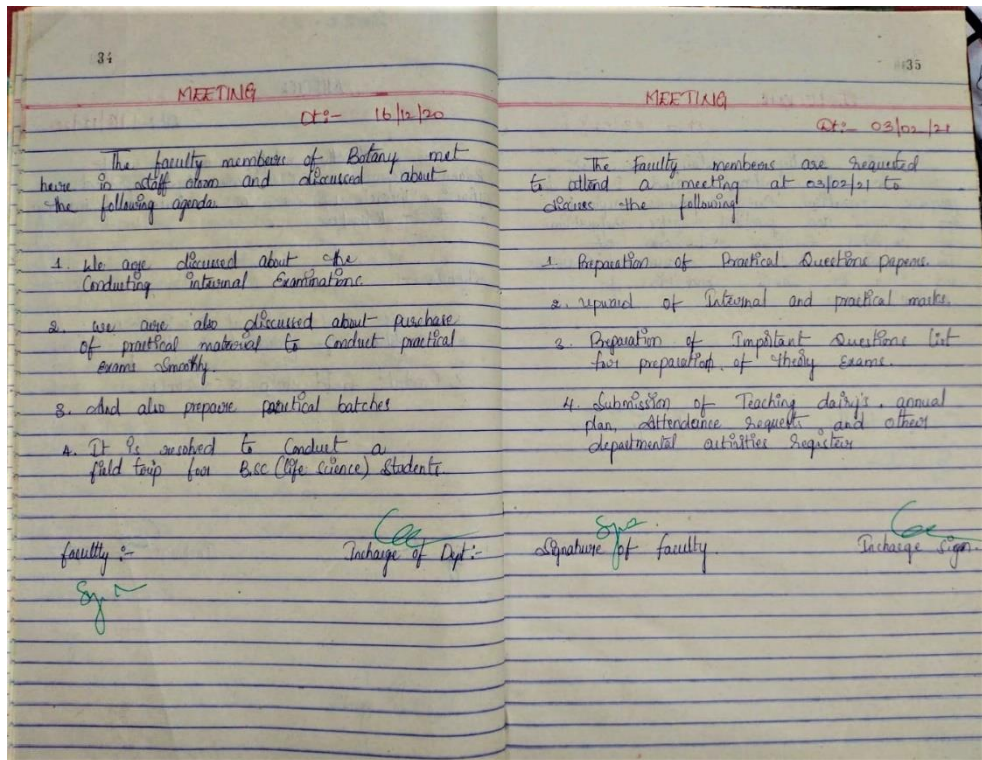 34
MEETING
Dt:- 16/12/20
The faculty members of Botany met
here in staff room and discussed about
the following agenda.
1. We are discussed about the
Conducting internal Examinations.
2. we are also discussed about purchase
of practical material to Conduct practical
exams Smoothly.
3. And also prepare practical batches
4. It is resolved to Conduct a
field trip for B.sc (life science) Students.
faculty :-
Incharge of Dept:-
35
MEETING
Dt:- 03/02/21
The faculty members are requested
to attend a meeting at 03/02/21 to
discuss the following
1. Preparation of Practical Questions papers.
2. upward of Internal and practical marks.
3. Preparation of Important Questions list
for preparation of theory exams.
4. Submission of Teaching dairy's, annual
plan, Attendence requests and other
departmental activities register
Signature of faculty.
Incharge sign.